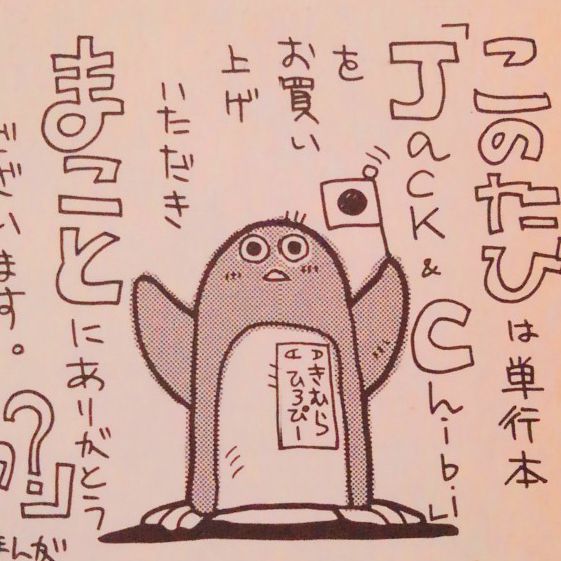 このたびは単行本
「Jack & Chibi」
を
お買い
上げ
いただき
まことにありがとう
ございます。
?」
まんが
きむら
ひろぴー